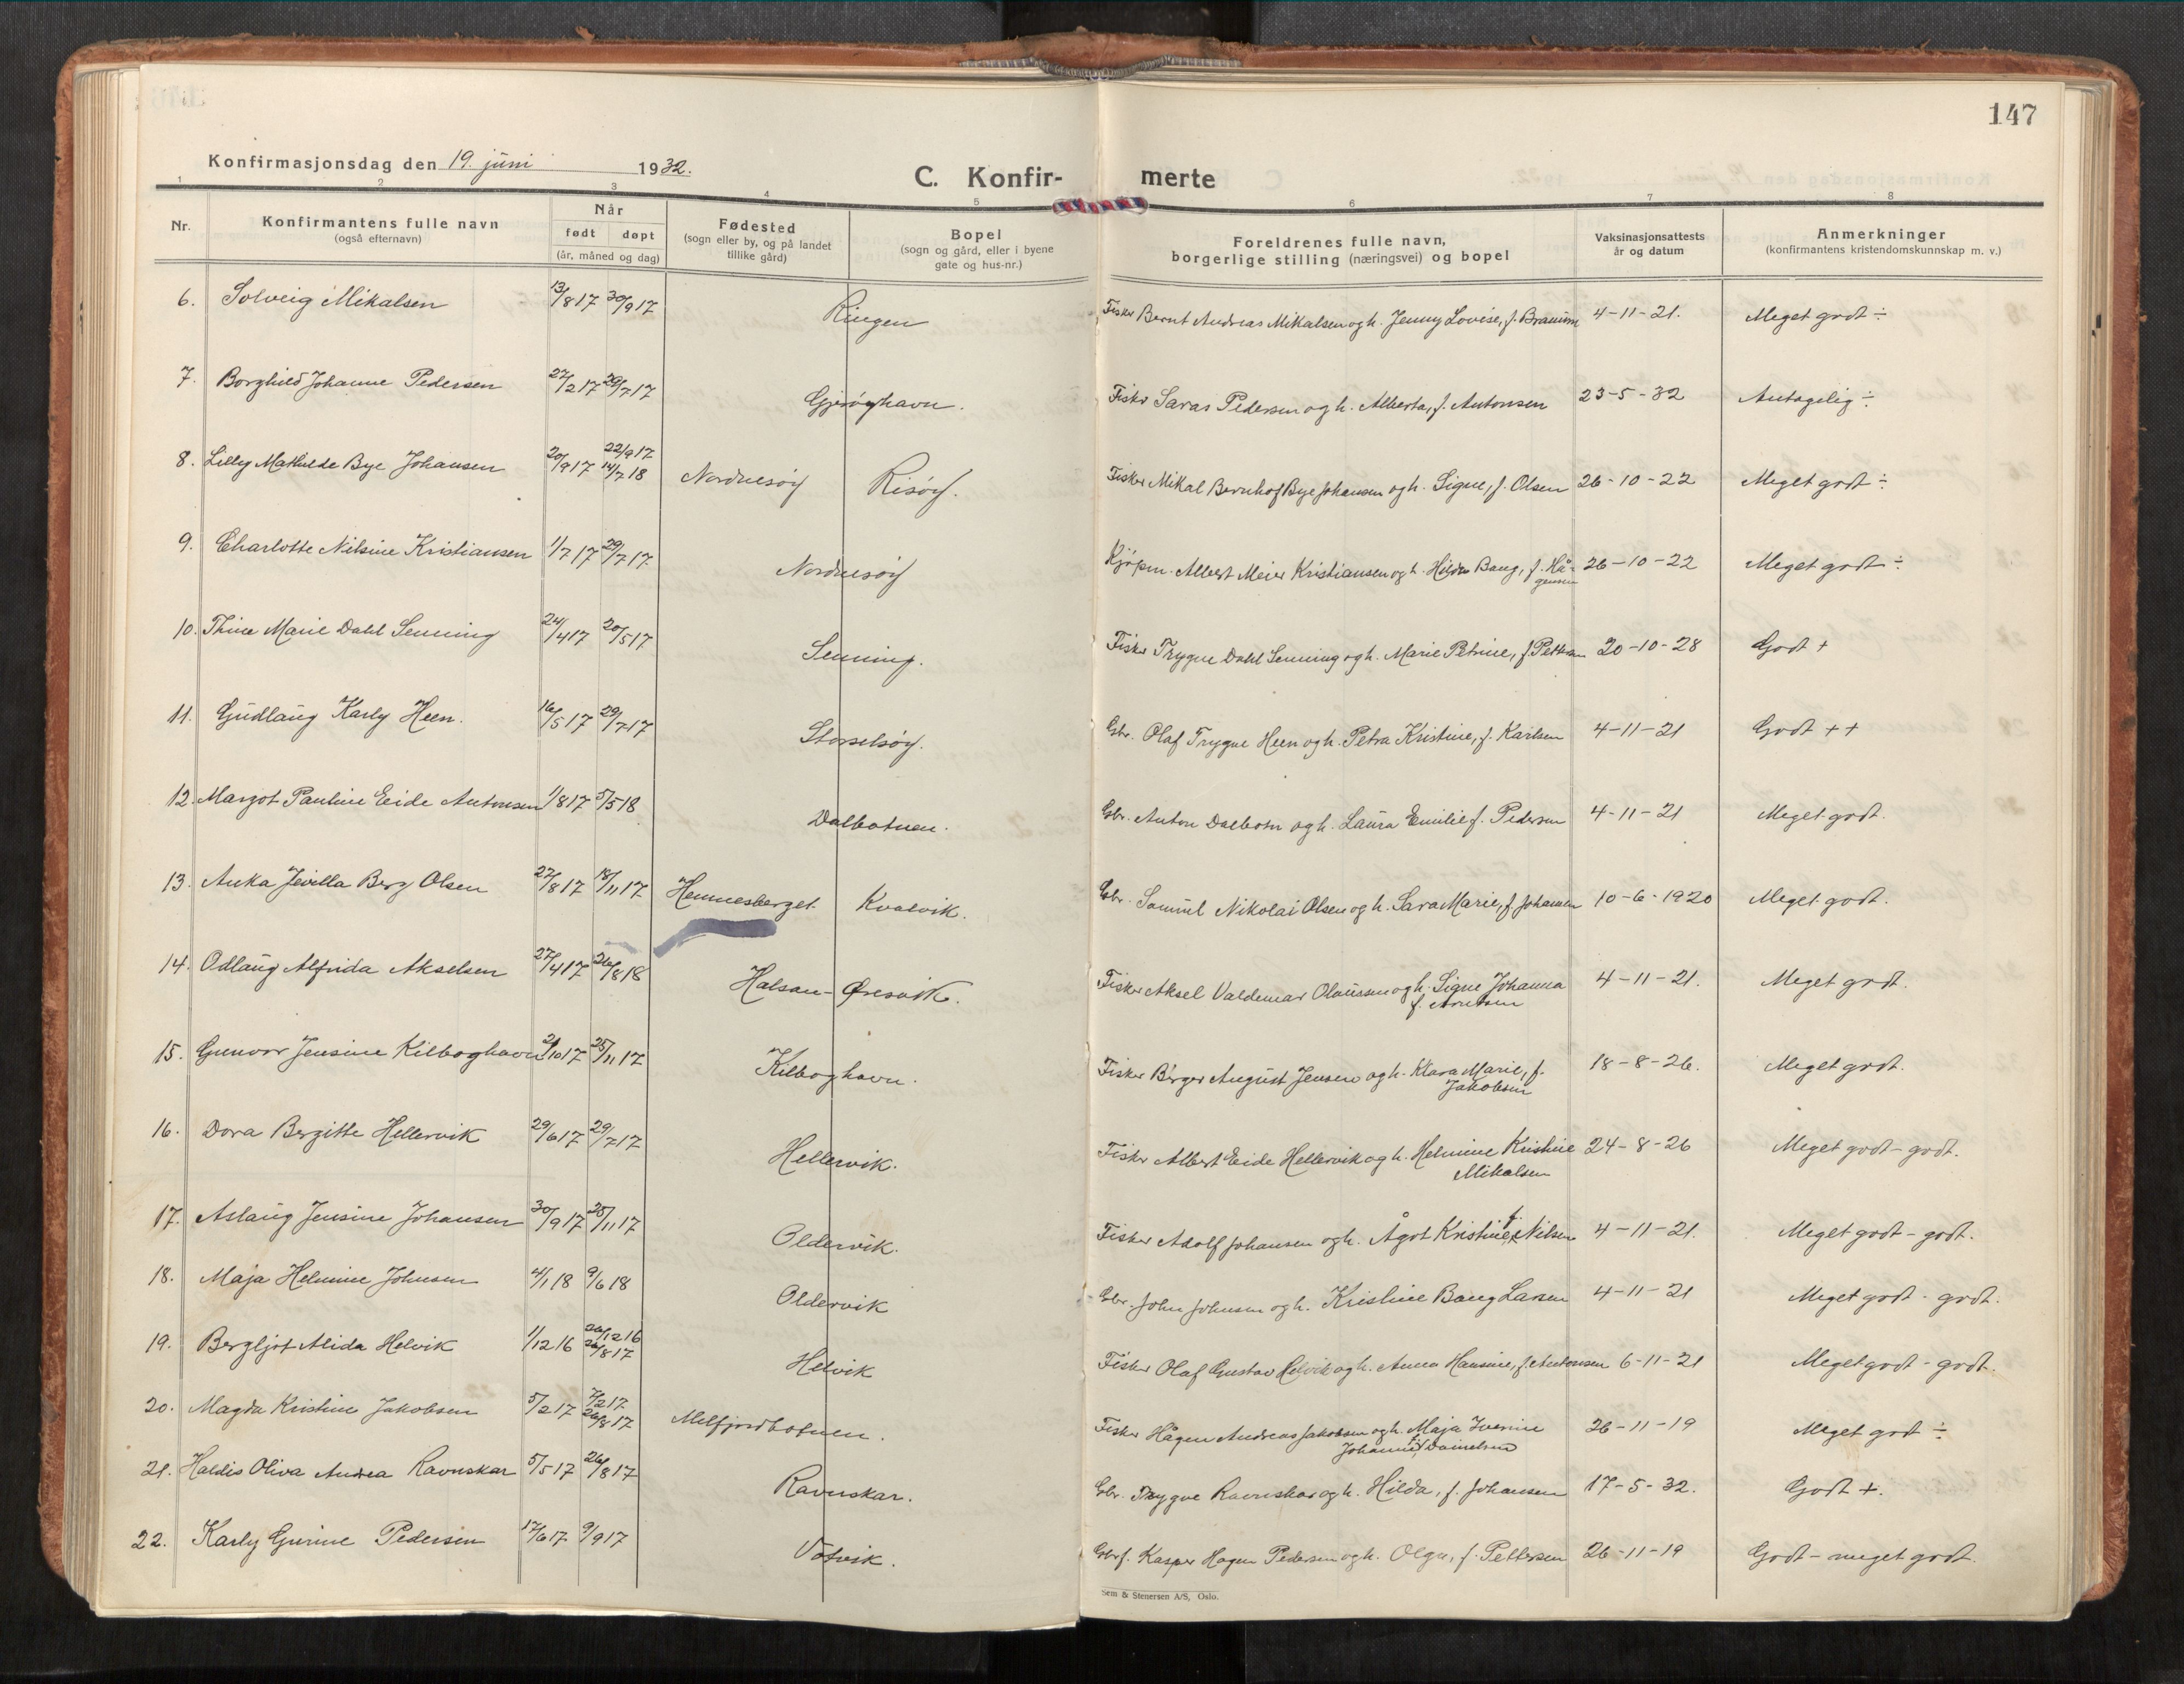 147
Konfirmasjonsdag den 19. juni 1932.
C. Konfir- merte
1 2 3 4 5 6 7 8
Nr.
Konfirmantens fulle navn
(også efternavn)
Når
født døpt
(år, måned og dag)
Fødested
(sogn eller by, og på landet
tillike gård)
Bopel
(sogn og gård, eller i byene
gate og hus-nr.)
Foreldrenes fulle navn,
borgerlige stilling (næringsvei) og bopel
Vaksinasjonsattests
år og datum
Anmerkninger
(konfirmantens kristendomskunnskap m. v.)
6. Solveig Mikalsen 13/8 17 30/9 17 Ringen Fisker Bernt Andreas Mikalsen og h. Jenny Lovise, f. 4-11-21. Meget godt ÷
7. Borghild Johanne Pedersen 27/2 17 29/7 17 Gjerøyhavn. Fisker Saras Pedersen og h. Alberta, f. Antonsen 23-5-32 Antagelig ÷
8. Lilly Mathilde Bye Johansen 20/9 17 22/9 17 14/7 18 Nordnesøy Risøy. Fisker Mikal Bernhof Bye Johansen og h. Signe, f. Olsen 26-10-22 Meget godt ÷
9. Charlotte Nilsine Kristiansen 1/7 17 29/7 17 Nordnesøy Kjøpm. Albert Meier Kristiansen og h. Hilda Bang, f. Hå-
gensen 26-10-22 Meget godt ÷
10. Thine Marie Dahl Senning 24/4 17 20/5 17 Senning. Fisker Trygve Dahl Senning og h. Marie Petrine, f. 20-10-28 Godt +
11. Gudlaug Karly Heen. 16/5 17 29/7 17 Storselsøy. Gbr. Olaf Trygve Heen og h. Petra Kristine, f. Karlsen 4-11-21 Godt ++
12. Margot Pauline Eide Antonsen 1/8 17 5/5 18 Dalbotnen. Gbr. Anton Dalbotn og h. Laura Emilie f. Pedersen 4-11-21 Meget godt.
13. Anka Jevilla Berg Olsen 27/8 17 18/11 17 Hemnesberget Kvalvik. Gbr. Samuel Nikolai Olsen og h. Sara Marie, f. Johansen 10-6-1920 Meget godt.
14. Odlaug Alfrida Akselsen 27/4 17 26/8 18 Halsan - Øresvik. Fisker Aksel Valdemar Olaussen og h. Signe Johanna
f. Arntsen 4-11-21. Meget godt.
15. Gunvor Jensine Kilboghavn 2/10 17 25/11 17 Kilboghavn. Fisker Birger August Jensen og h. Klara Marie, f.
Jakobsen 18-8-26. Meget godt.
16. Dora Bergitte Hellervik 29/6 17 29/7 17 Hellervik. Fisker Albert Eide Hellervik og h. Helmine Kristine
Mikalsen 24-8-26 Meget godt - godt.
17. Aslaug Jensine Johansen 30/9 17 25/11 17 Oldervik. Fisker Adolf Johansen og h. Ågot Kristine f. Nilsen 4-11-21. Meget godt - godt.
18. Maja Helmine Johnsen 4/1 18 9/6 18 Oldervik Gbr. John Johnsen og h. Kristine Bang Larsen 4-11-21 Meget godt - godt.
19. Bergljot Alida Helvik 1/12 16 26/12 16 26/8 17 Helvik Fisker Olaf Gustav Helvik og h. Anna Hansine, f. Antonsen 6-11-21 Meget godt - godt.
20. Magda Kristine Jakobsen 5/2 17 7/2 17 26/8 17 Melfjordbotnen. Fisker Hågen Andreas Jakobsen og h. Maja Iverine
Johanne f. Danielsen 26-11-19 Meget godt ÷
21. Haldis Oliva Andrea Ravnskar 5/5 17 26/8 17 Ravnskar. Gbr. Trygve Ravnskar og h. Hilda, f. Johansen 17-5-32. Godt +.
22. Karly Gurine Pedersen 17/6 17 9/9 17 Våtvik. Gbrf. Kasper Hagen Pedersen og h. Olga, f. Pettersen 26-11-19 Godt - meget godt.
Sem & Stenersen A/S, Oslo.